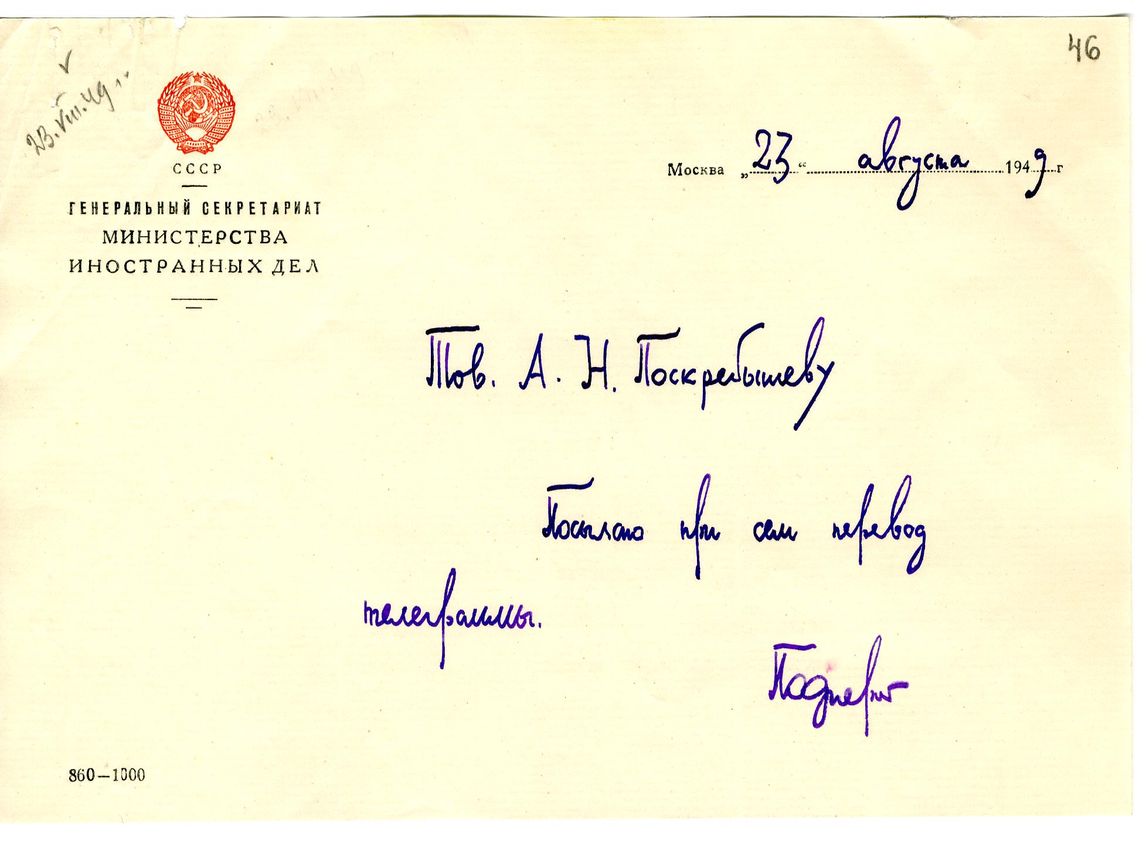 46
23.VIII.49 г.
СССР
ГЕНЕРАЛЬНЫЙ СЕКРЕТАРИАТ
МИНИСТЕРСТВА
ИНОСТРАННЫХ ДЕЛ
Москва „23“ августа 1949 г
Тов. А. Н. Поскребышеву
Посылаю при сем перевод
телеграммы.
Подцероб
860—1000